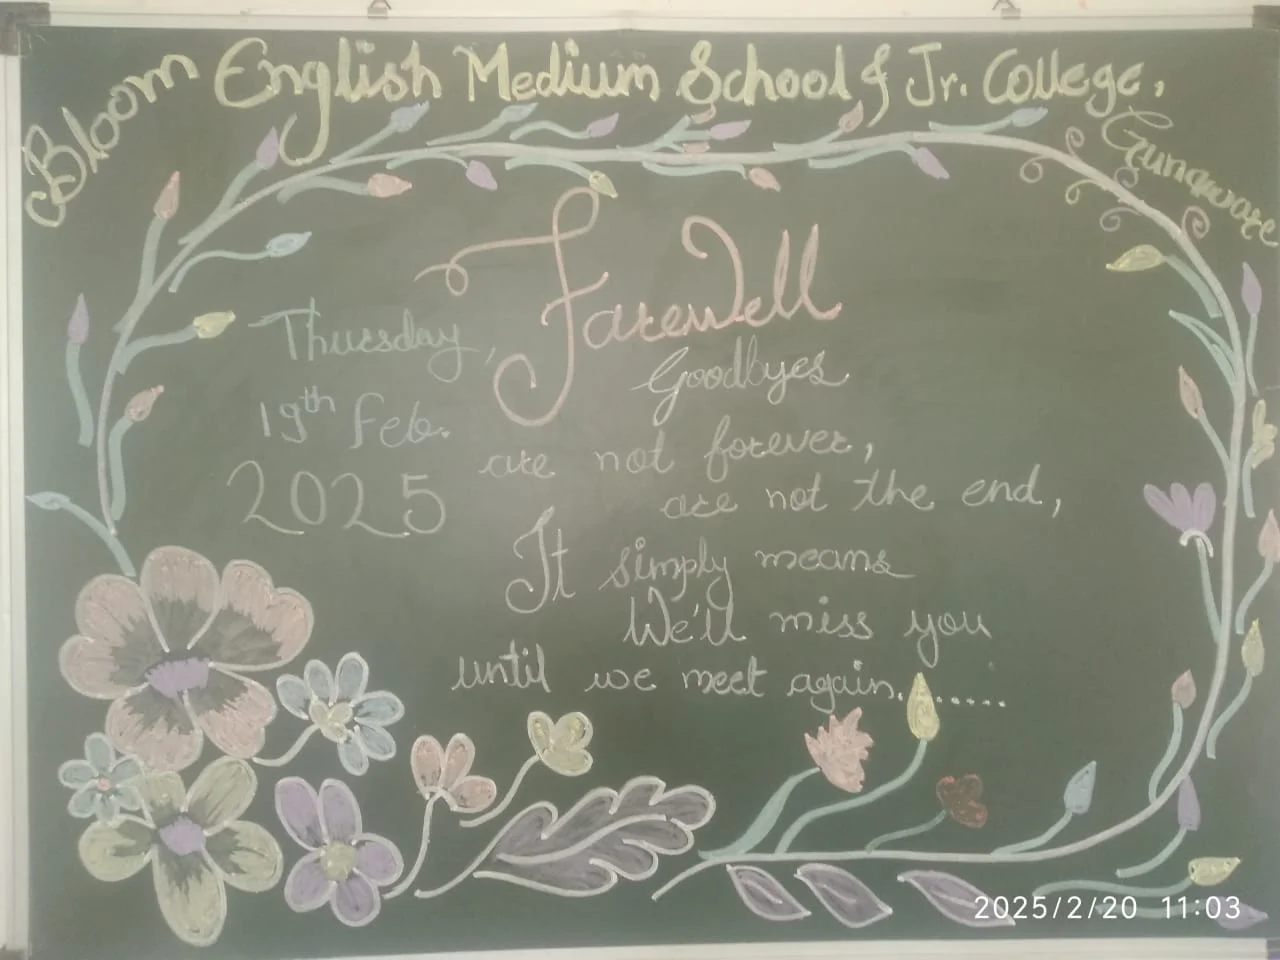 Bloom English Medium School & Jr. College, Gunaware
Farewell
Thursday,
19th Feb.
2025
Goodbyes
are not forever,
are not the end,
It simply means
We'll miss you
until we meet again.......
2025/2/20 11:03